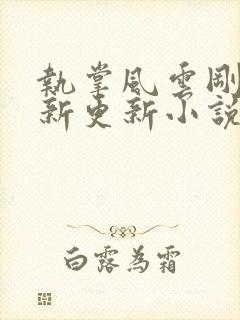 執掌風雲剛
新更新小說
白露為霜